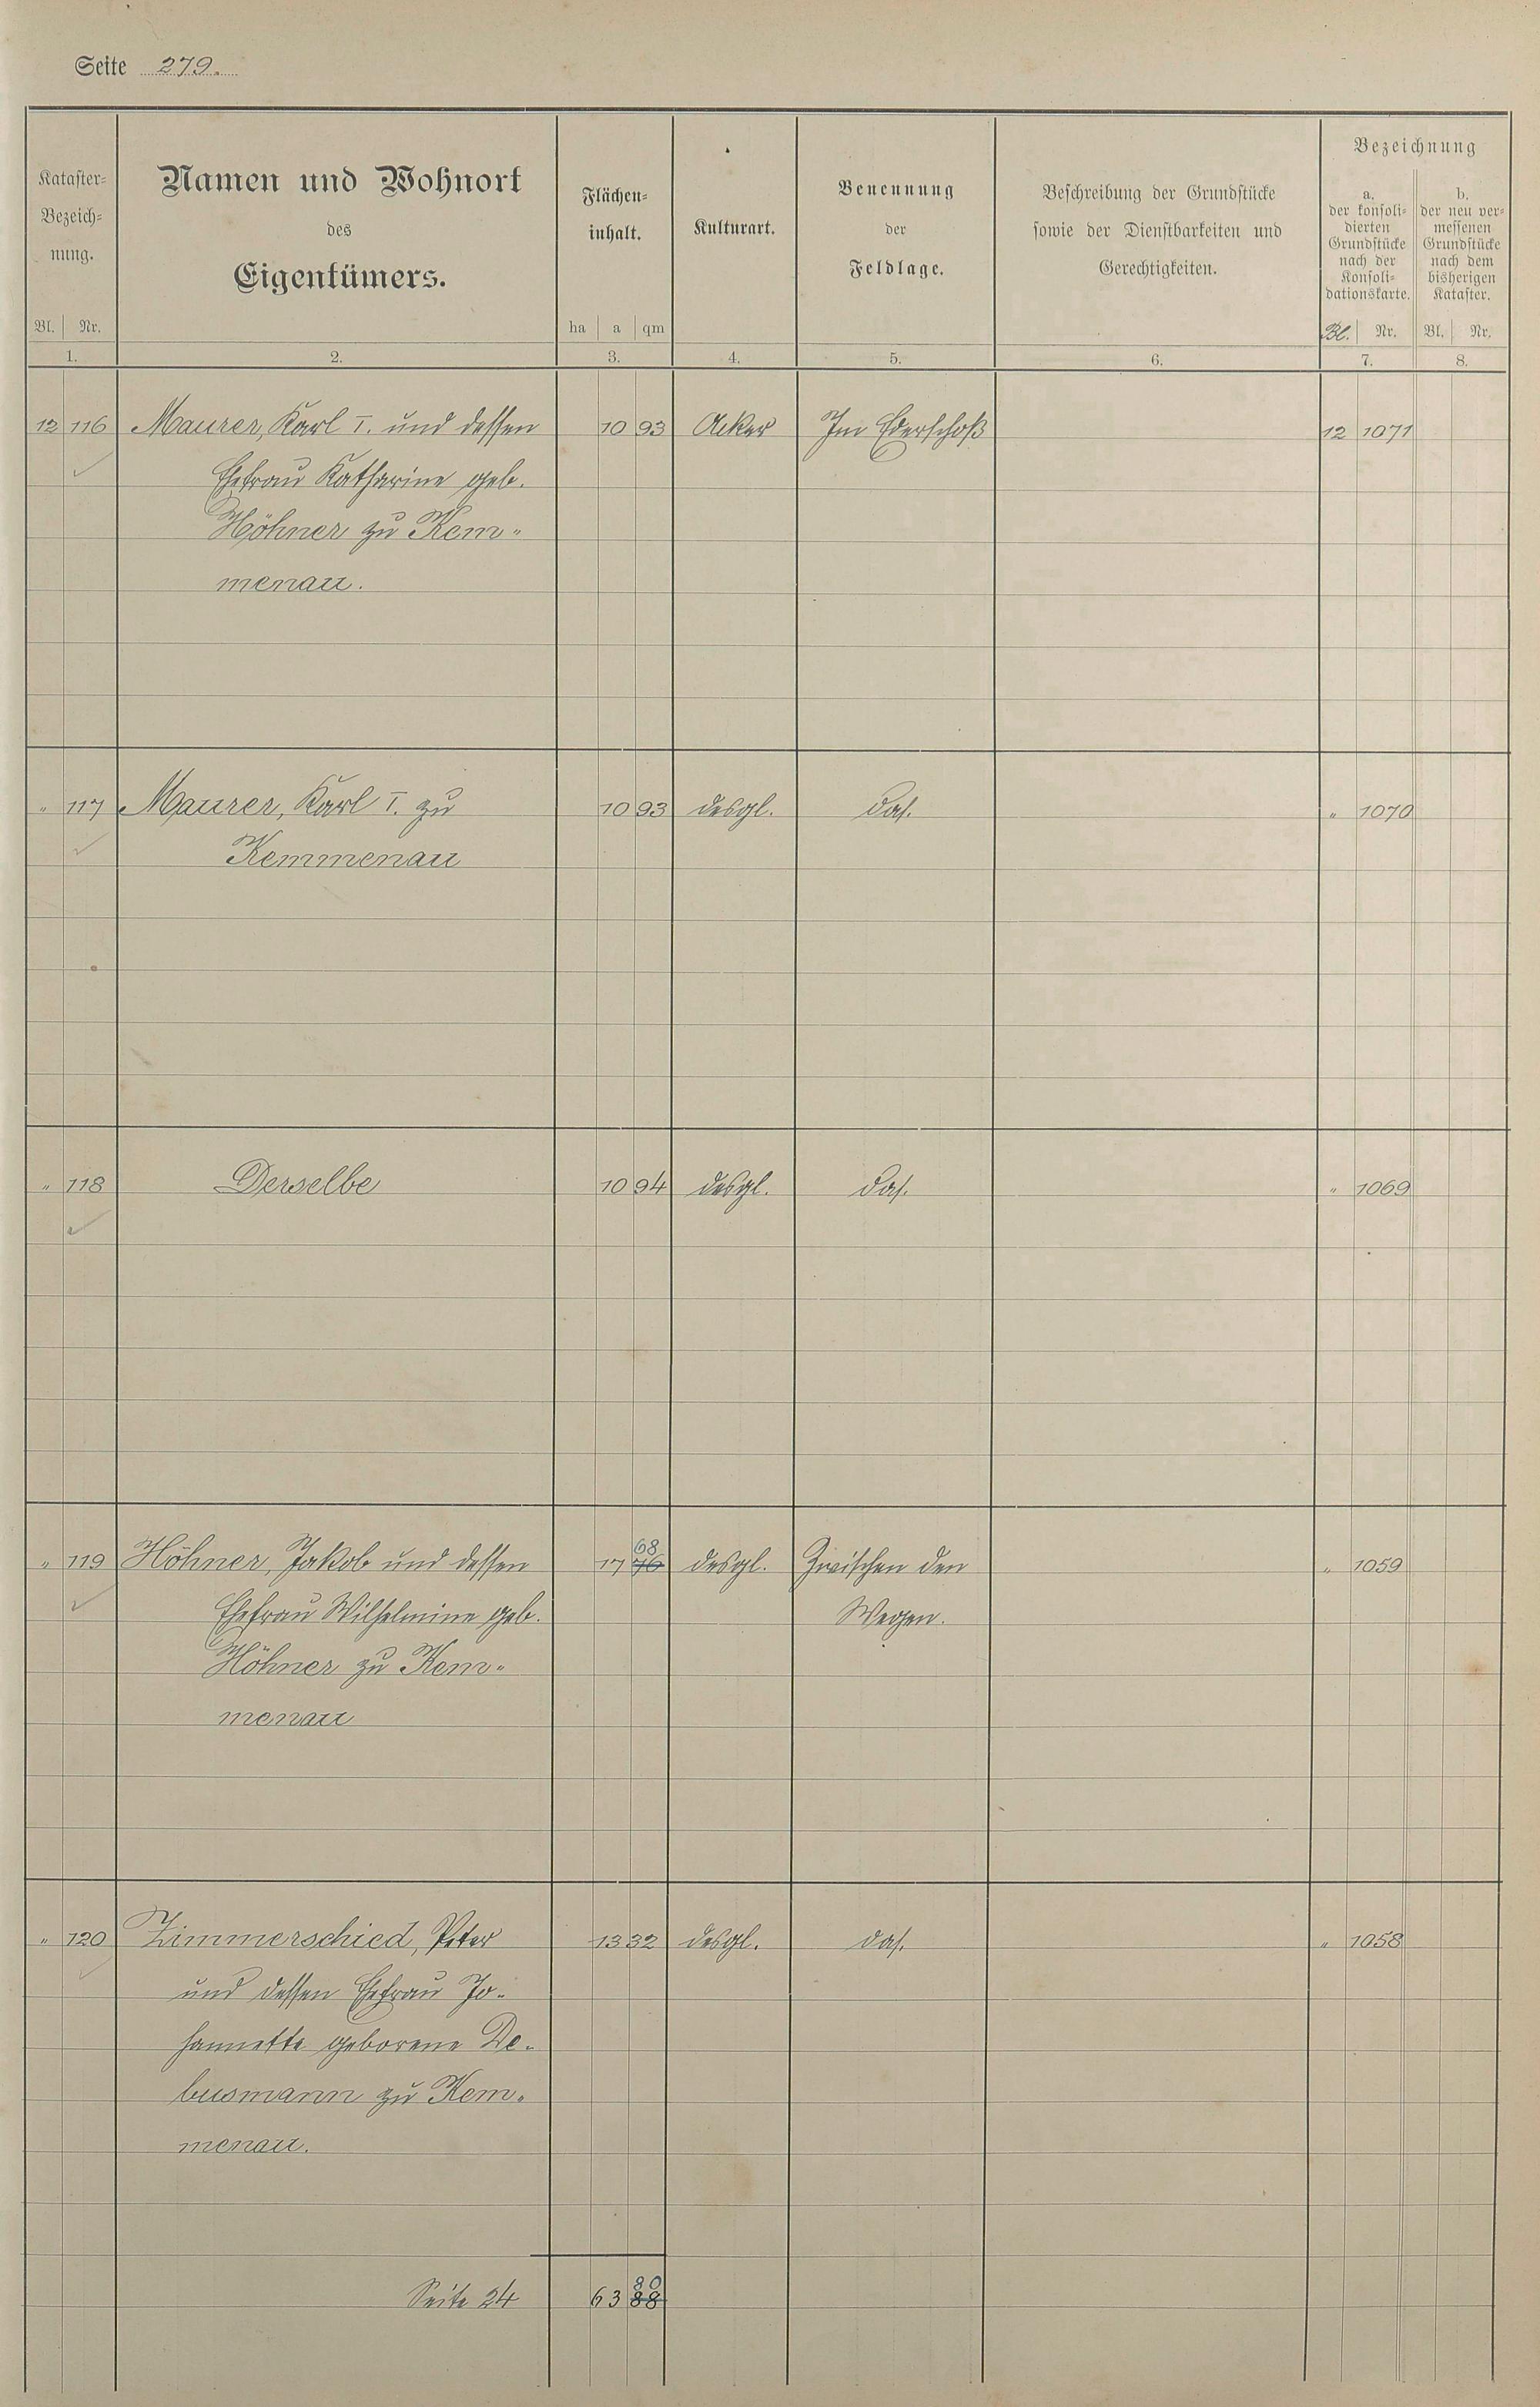 Seite 279.
Kataster-
Bezeich-
nung.
Namen und Wohnort
des
Eigentümers.
Flächen-
inhalt.
Kulturart.
Benennung
der
Feldlage.
Beschreibung der Grundstücke
sowie der Dienstbarkeiten und
Gerechtigkeiten.
Bezeichnung
a.
der konsoli-
dierten
Grundstücke
nach der
Konsoli-
dationskarte.
b.
der neu ver-
messenen
Grundstücke
nach dem
bisherigen
Kataster.
Bl. Nr. ha a qm Bl. Nr. Bl. Nr.
1. 2. 3. 4. 5. 6. 7. 8.
12 116 Maurer, Karl I. und dessen 10 93 Acker Im Ederschoß 12 1071
Ehefrau Katharine geb.
Höhner zu Kem-
menau.
" 117 Maurer, Karl I. zu 10 93 desgl. das. " 1070
Kemmenau
" 118 Derselbe 10 94 desgl. das. " 1069
68
" 119 Höhner, Jakob und dessen 17 76 desgl. Zwischen den " 1059
Ehefrau Wilhelmine geb. Wegen.
Höhner zu Kem-
menau
" 120 Zimmerschied, Peter 13 32 desgl. das. " 1058
und dessen Ehefrau Jo-
hannette geborene De-
busmann zu Kem-
menau.
80
Seite 24 63 88